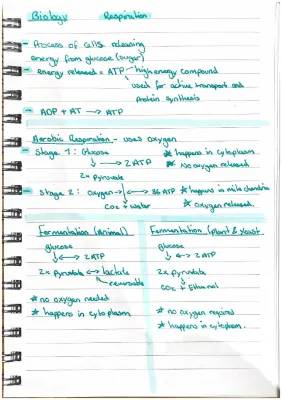 Biology Respiration
- Process of cells releasing
energy from glucose (sugar)
- energy released = ATP → high energy compound
used for active transport and
protein synthesis
- ADP + AT → ATP
Aerobic Respiration - uses oxygen
- Stage 1: Glucose * happens in cytoplasm
→ 2ATP * No oxygen released
2x Pyruvate
- Stage 2: oxygen → 36 ATP * happens in mitochondria
CO2 + water * oxygen released.
Fermentation (Animal)
glucose
→ 2ATP
2x pyruvate ↔ lactate
reversable
* no oxygen needed
* happens in cytoplasm
Fermentation (plant & yeast
glucose
→ 2ATP
2x pyruvate
CO2 + Ethanol
* no oxygen required
* happens in cytoplasm.